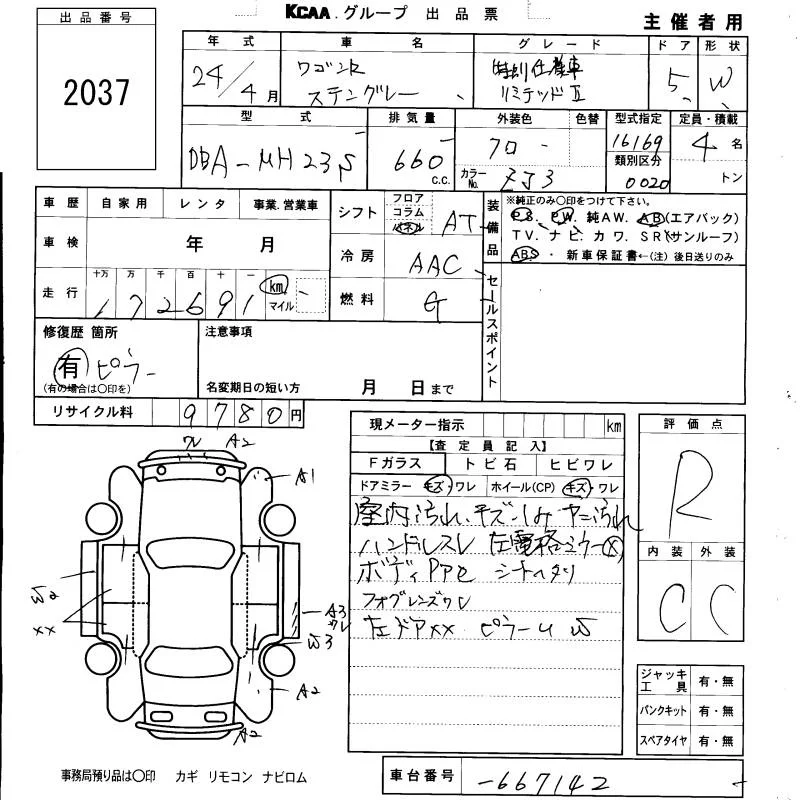 KCAA.グループ 出品票
主催者用
出品番号
2037
年式 車名 グレード ドア 形状
24/4月 ワゴンR スティングレー 特別仕様車 リミテッドⅡ 5 W
型式 排気量 外装色 色替 型式指定 定員・積載
DBA-MH23S 660 c.c. クロ 16169 4名
カラーNo. ZJ3 類別区分 0020 トン
車歴 自家用 レンタ 事業.営業車
車検 年 月
走行 十万 万 千 百 十 一 km マイル
172691
シフト フロア コラム パネル AT
冷房 AAC
燃料 G
装備品
※純正のみ○印をつけて下さい。
PS. PW. 純AW. AB(エアバック)
TV. ナビ. カワ. SR(サンルーフ)
ABS・新車保証書←(注)後日送りのみ
セールスポイント
修復歴 箇所
有 ピラー
(有の場合は○印を)
注意事項
名変期日の短い方 月 日まで
リサイクル料 9780円
現メーター指示 km
【査定員記入】
Fガラス トビ石 ヒビワレ
ドアミラー キズ・ワレ ホイール(CP) キズ・ワレ
室内汚れ、キズ・シミ ヤニ汚れ
ハンドルスレ 左電格ミラー(×)
ボディ シートヘタリ
フォグレンズワレ
左ドアXX ピラーU W
評価点
R
内装 外装
C C
ワレ A2
A1
W2
XX
A3
ワレ
W3
A2
A2
ジャッキ工具 有・無
パンクキット 有・無
スペアタイヤ 有・無
事務局預り品は○印 カギ リモコン ナビロム
車台番号 -667142